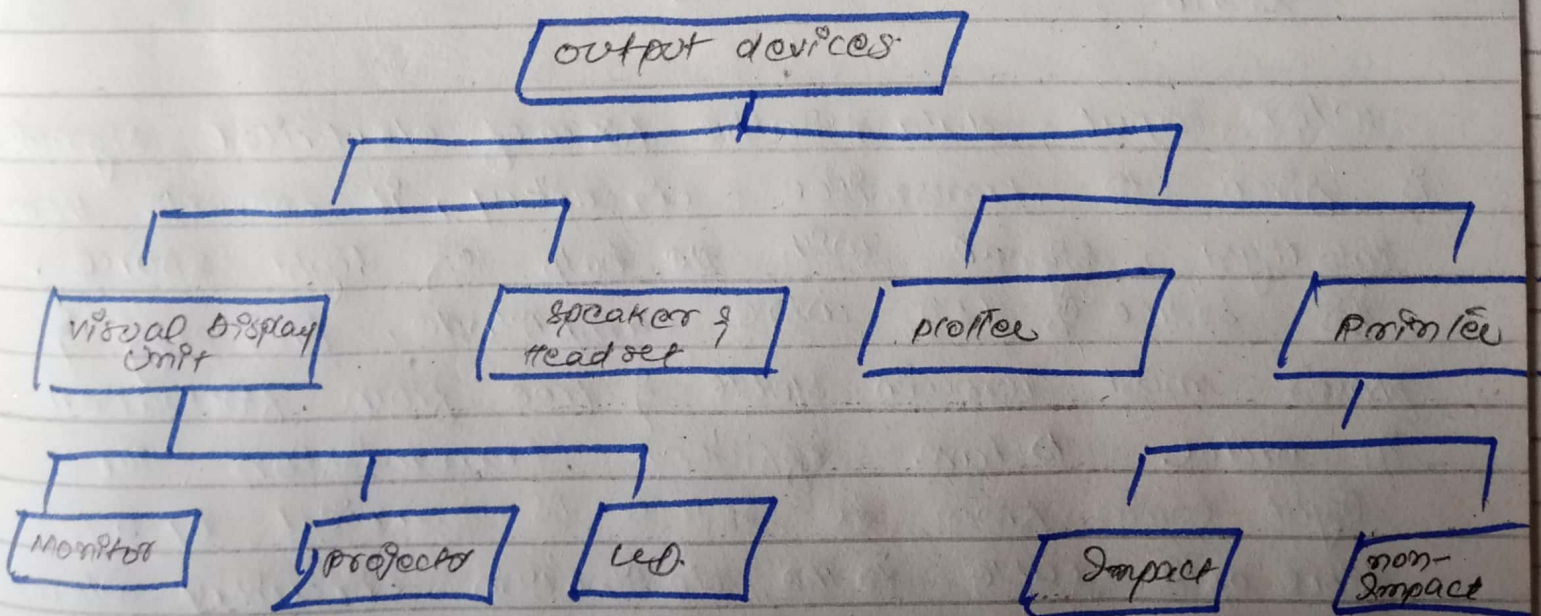 output devices
Visual Display
Unit
Speaker &
Headset
plotter
Printer
Monitor
projector
Impact
non-
Impact